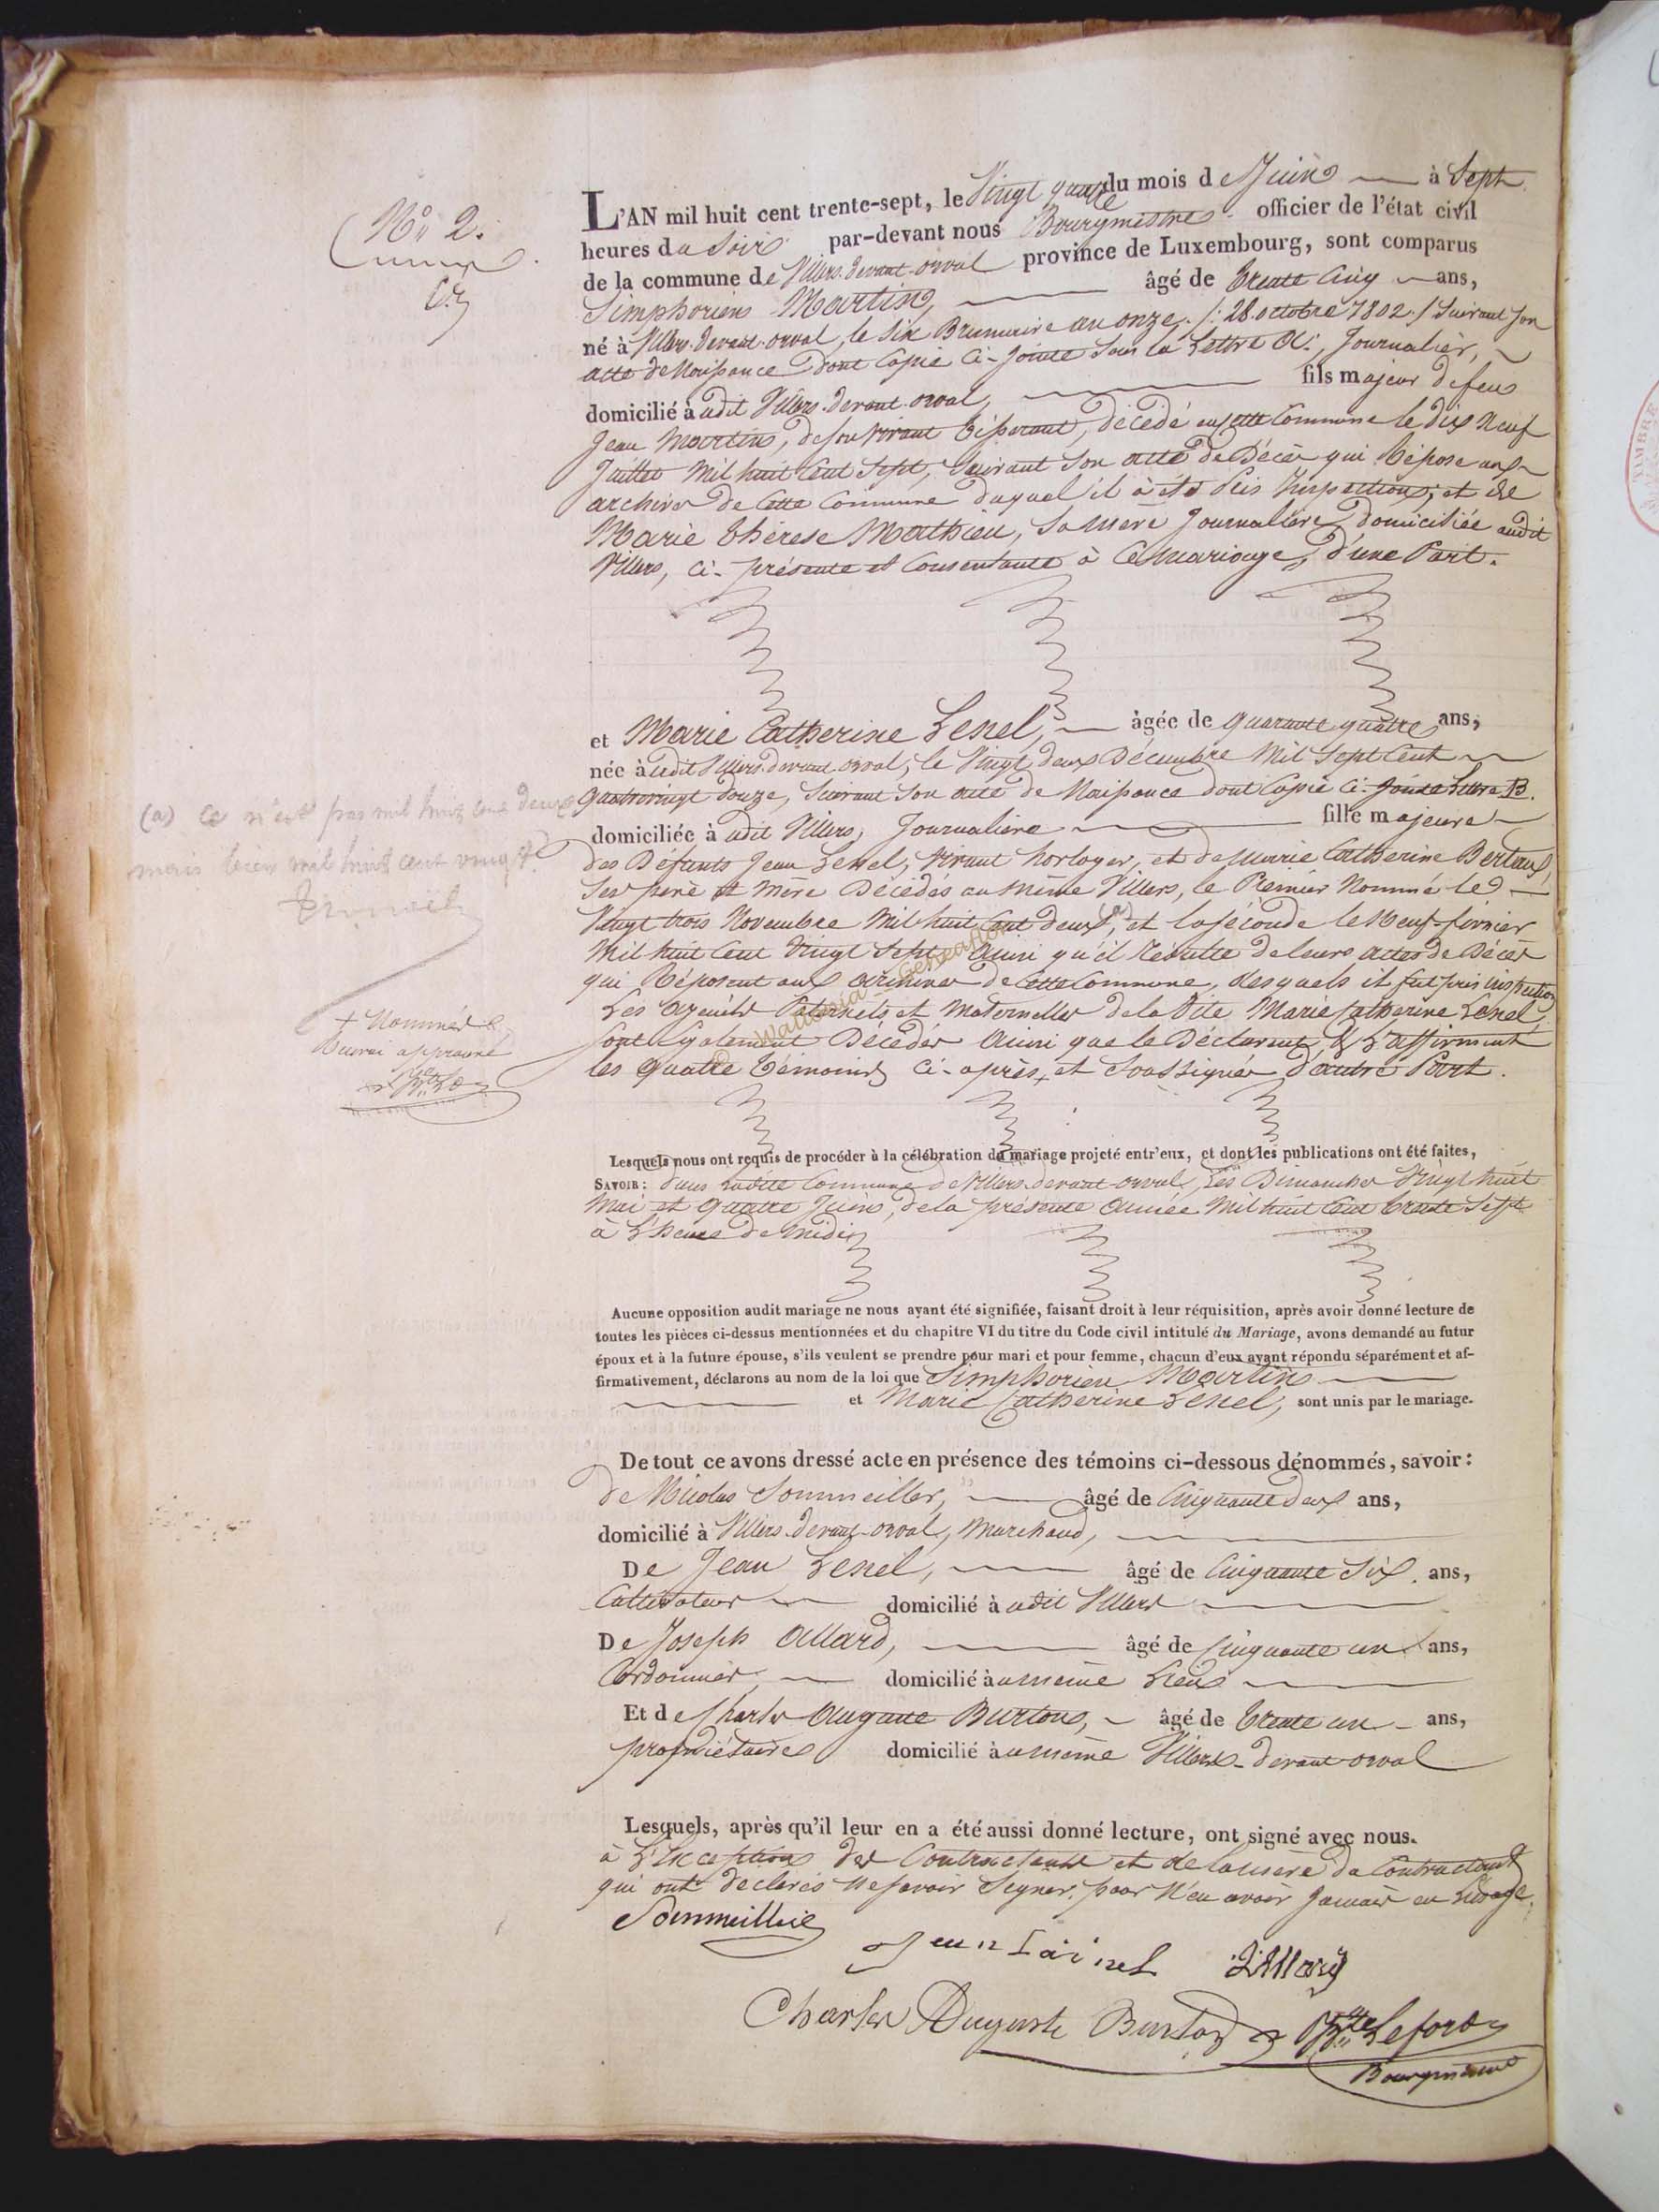 N° 2.
L'AN mil huit cent trente-sept, le Vingt quatre du mois de Juin à Sept
heures du Soir par-devant nous Bourgmestre officier de l'état civil
de la commune de Villers-devant-orval province de Luxembourg, sont comparus
Simphorien Martin, âgé de trente Cinq ans,
né à Villers-devant-orval, le Six Brumaire an onze, /: 28 octobre 1802 :/ Suivant son
acte de Naissance dont Copie Ci-Jointe Sous la Lettre A; Journalier,
domicilié à udit Villers-devant-orval, fils majeur de feu
Jean Martin, de son vivant tisserant, décédé en cette Commune le dix Neuf
Juillet Mil huit Cent Sept, Suivant Son acte de Décès qui Répose aux
archives de Cette Commune duquel il à été Pris Inspection; et de
Marie thérese Mathieu, Sa Mere Journalière domiciliée audit
Villers, Ci-présente et Consentante à Ce Mariage, d'une Part.
et Marie Catherine Lenel, âgée de quarante quatre ans,
née à udit Villers-devant-orval, le Vingt deux Décembre Mil Sept Cent
Quatrevingt douze, Suivant Son acte de Naissance dont Copie Ci-Jointe Lettre B.
domiciliée à udit Villers, Journalière fille majeure
des Défunts Jean Lenel, vivant horloger, et de Marie Catherine Bertaux,
Ses père et Mère Décédés au Même Villers, le Premier Nommé le
Vingt trois Novembre Mil huit Cent deux (a), et la Séconde le Neuf février
Mil huit Cent Vingt Sept Ainsi qu'il Résulte de leurs actes de Décès
qui Réposent aux archives de Cette Commune, desquels il fut pris inspection
Les ayeuls Paternels et Maternelles de la Dite Marie Catherine Lenel,
Sont également Décédés Ainsi que le Déclarent & L'affirment
les quatre témoins Ci-après + et Soussignés D'autre Part.
(a) ce n'est pas mil huit cent deux
mais bien mil huit cent vingt.
+ Nommés
Renvoi approuvé
Lesquels nous ont requis de procéder à la célébration du mariage projeté entr'eux, et dont les publications ont été faites,
SAVOIR: Dans ladite Commune de Villers-devant-orval, Les Dimanches Vingt huit
Mai et quatre Juin, de la présente année Mil huit Cent trente Sept
à L'heure de midi
Aucune opposition audit mariage ne nous ayant été signifiée, faisant droit à leur réquisition, après avoir donné lecture de
toutes les pièces ci-dessus mentionnées et du chapitre VI du titre du Code civil intitulé du Mariage, avons demandé au futur
époux et à la future épouse, s'ils veulent se prendre pour mari et pour femme, chacun d'eux ayant répondu séparément et af-
firmativement, déclarons au nom de la loi que Simphorien Martin
et Marie Catherine Lenel, sont unis par le mariage.
De tout ce avons dressé acte en présence des témoins ci-dessous dénommés, savoir:
de Nicolas Sommeiller, âgé de Cinquante deux ans,
domicilié à Villers-devant-orval, Marchand,
De Jean Lenel, âgé de Cinquante Six ans,
Cultivateur domicilié à udit Villers
De Joseph Allard, âgé de Cinquante un ans,
Cordonnier, domicilié à u même Lieu
Et de Charles Auguste Burton, âgé de trente un ans,
propriétaire domicilié à u même Villers-devant-orval
Lesquels, après qu'il leur en a été aussi donné lecture, ont signé avec nous.
à L'Exception des Contractants et de la mère du Contractant
qui ont déclarés Ne savoir Signer, pour N'en avoir Jamais eu L'usage.
Sommeillier
Jean Lainel J. Allard
Charles Auguste Burton Lefort
Bourgmestre
© Wallonia - Geneanet